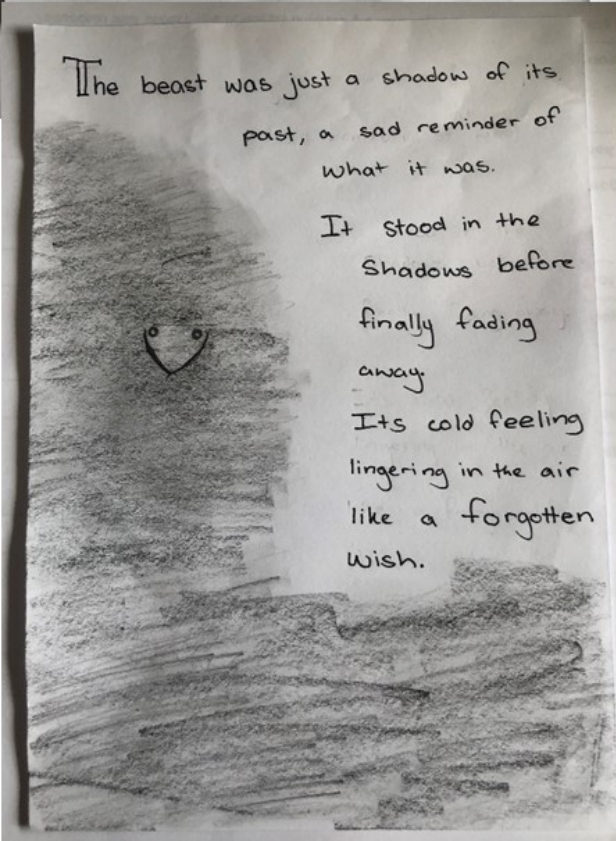 The beast was just a shadow of its
past, a sad reminder of
what it was.
It stood in the
shadows before
finally fading
away.
Its cold feeling
lingering in the air
like a forgotten
wish.